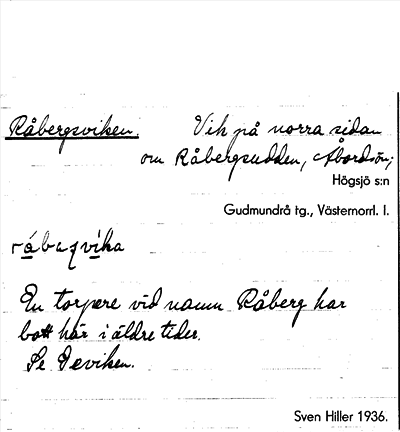 Råbergsviken. Vik på norra sidan
om Råbergsudden, Åbordsön;
Högsjö s:n
Gudmundrå tg., Västernorrl. l.
En torpare vid namn Råberg har
bott här i äldre tider.
Se Deviken.
Sven Hiller 1936.